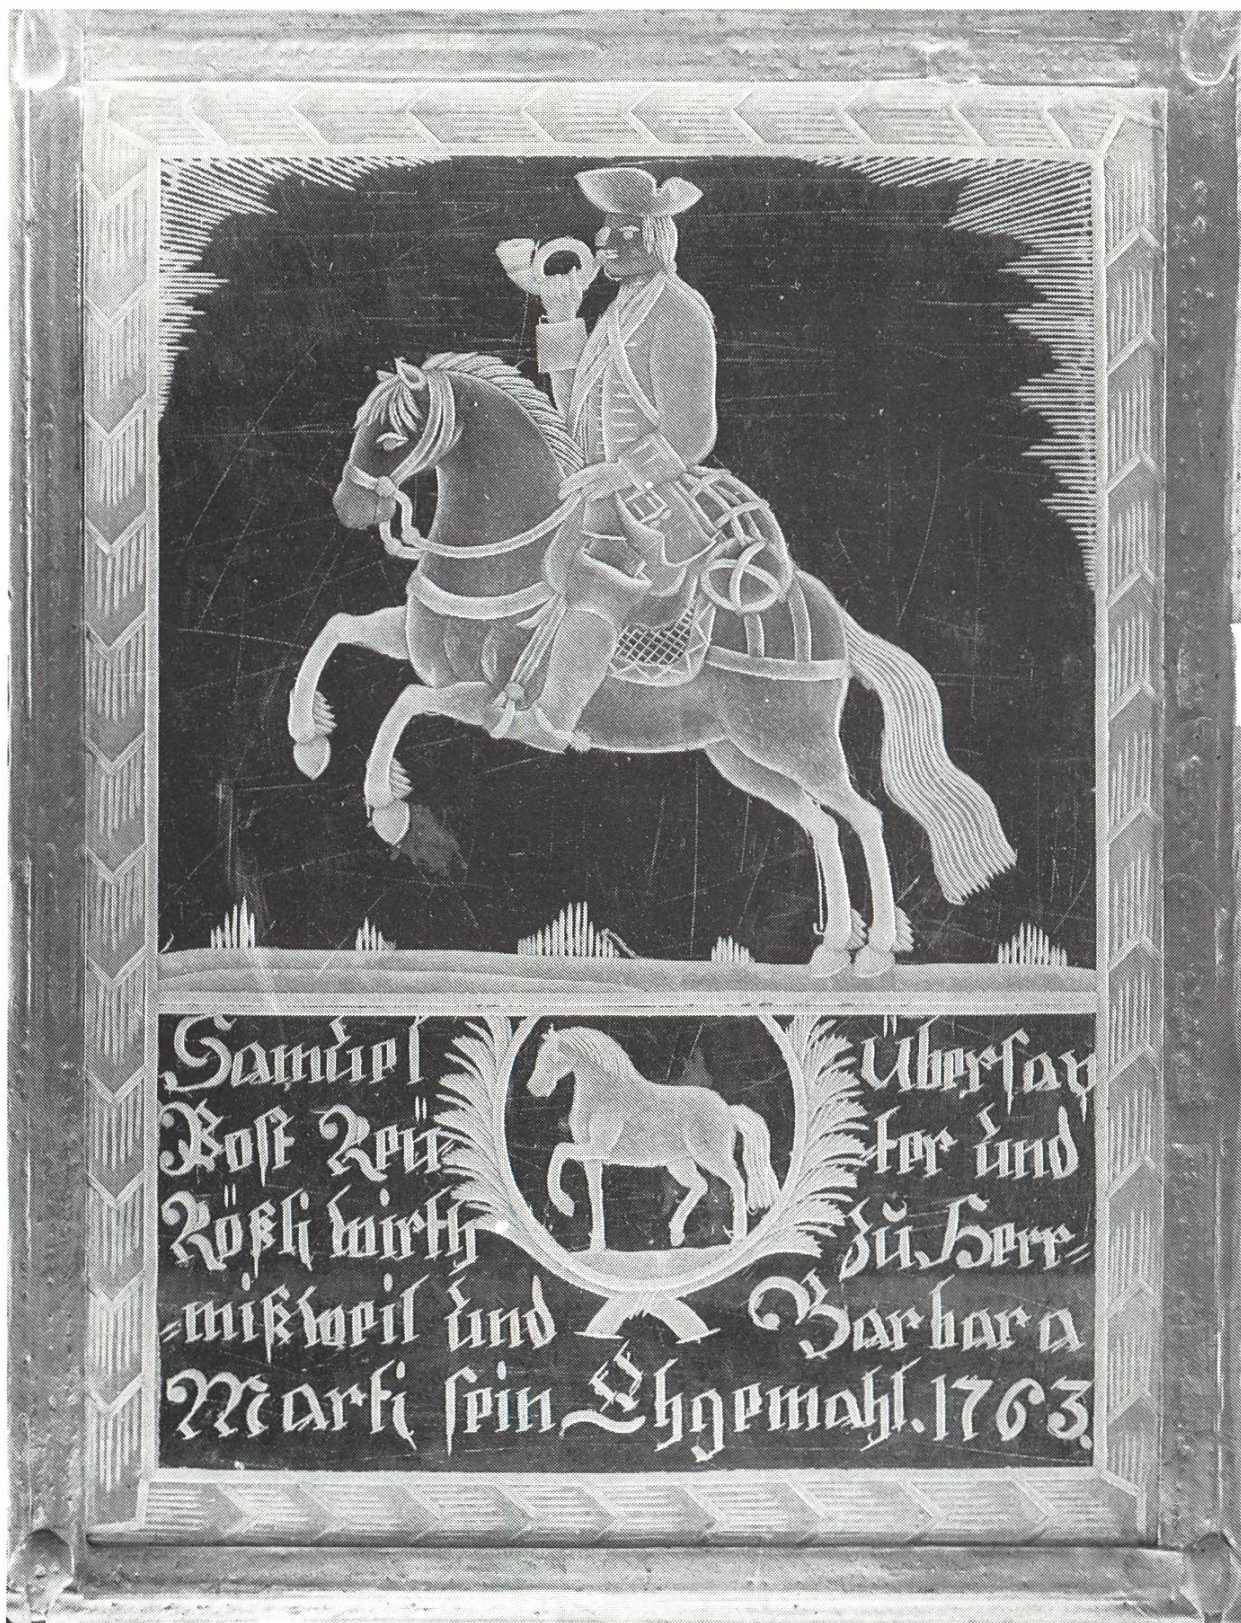 Samuel Übersax
Post Reü= ter und
Rößli wirth zu Herr=
=mißweil und Barbara
Marti sein Ehgemahl. 1763.